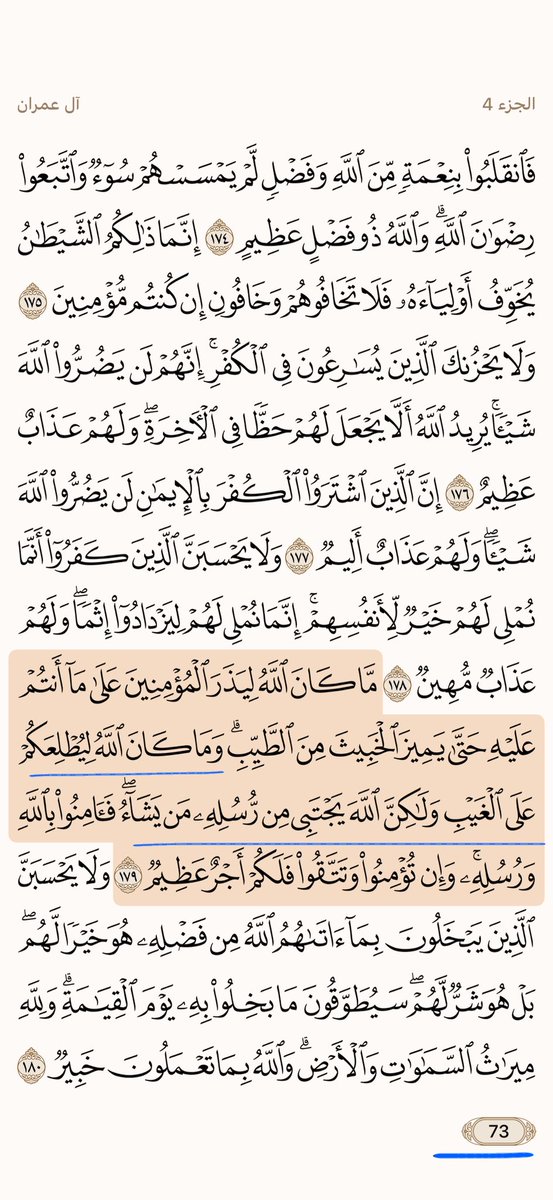 الجزء 4 آل عمران
فَٱنقَلَبُواْ بِنِعۡمَةٖ مِّنَ ٱللَّهِ وَفَضۡلٖ لَّمۡ يَمۡسَسۡهُمۡ سُوٓءٞ وَٱتَّبَعُواْ
رِضۡوَٰنَ ٱللَّهِۗ وَٱللَّهُ ذُو فَضۡلٍ عَظِيمٍ ١٧٤ إِنَّمَا ذَٰلِكُمُ ٱلشَّيۡطَٰنُ
يُخَوِّفُ أَوۡلِيَآءَهُۥ فَلَا تَخَافُوهُمۡ وَخَافُونِ إِن كُنتُم مُّؤۡمِنِينَ ١٧٥
وَلَا يَحۡزُنكَ ٱلَّذِينَ يُسَٰرِعُونَ فِي ٱلۡكُفۡرِۚ إِنَّهُمۡ لَن يَضُرُّواْ ٱللَّهَ
شَيۡـٔٗاۚ يُرِيدُ ٱللَّهُ أَلَّا يَجۡعَلَ لَهُمۡ حَظّٗا فِي ٱلۡأٓخِرَةِۖ وَلَهُمۡ عَذَابٌ
عَظِيمٌ ١٧٦ إِنَّ ٱلَّذِينَ ٱشۡتَرَوُاْ ٱلۡكُفۡرَ بِٱلۡإِيمَٰنِ لَن يَضُرُّواْ ٱللَّهَ
شَيۡـٔٗاۖ وَلَهُمۡ عَذَابٌ أَلِيمٞ ١٧٧ وَلَا يَحۡسَبَنَّ ٱلَّذِينَ كَفَرُوٓاْ أَنَّمَا
نُمۡلِي لَهُمۡ خَيۡرٞ لِّأَنفُسِهِمۡۚ إِنَّمَا نُمۡلِي لَهُمۡ لِيَزۡدَادُوٓاْ إِثۡمٗاۖ وَلَهُمۡ
عَذَابٞ مُّهِينٞ ١٧٨ مَّا كَانَ ٱللَّهُ لِيَذَرَ ٱلۡمُؤۡمِنِينَ عَلَىٰ مَآ أَنتُمۡ
عَلَيۡهِ حَتَّىٰ يَمِيزَ ٱلۡخَبِيثَ مِنَ ٱلطَّيِّبِۗ وَمَا كَانَ ٱللَّهُ لِيُطۡلِعَكُمۡ
عَلَى ٱلۡغَيۡبِ وَلَٰكِنَّ ٱللَّهَ يَجۡتَبِي مِن رُّسُلِهِۦ مَن يَشَآءُۖ فَـَٔامِنُواْ بِٱللَّهِ
وَرُسُلِهِۦۚ وَإِن تُؤۡمِنُواْ وَتَتَّقُواْ فَلَكُمۡ أَجۡرٌ عَظِيمٞ ١٧٩ وَلَا يَحۡسَبَنَّ
ٱلَّذِينَ يَبۡخَلُونَ بِمَآ ءَاتَىٰهُمُ ٱللَّهُ مِن فَضۡلِهِۦ هُوَ خَيۡرٗا لَّهُمۖ
بَلۡ هُوَ شَرّٞ لَّهُمۡۖ سَيُطَوَّقُونَ مَا بَخِلُواْ بِهِۦ يَوۡمَ ٱلۡقِيَٰمَةِۗ وَلِلَّهِ
مِيرَٰثُ ٱلسَّمَٰوَٰتِ وَٱلۡأَرۡضِۗ وَٱللَّهُ بِمَا تَعۡمَلُونَ خَبِيرٞ ١٨٠
73